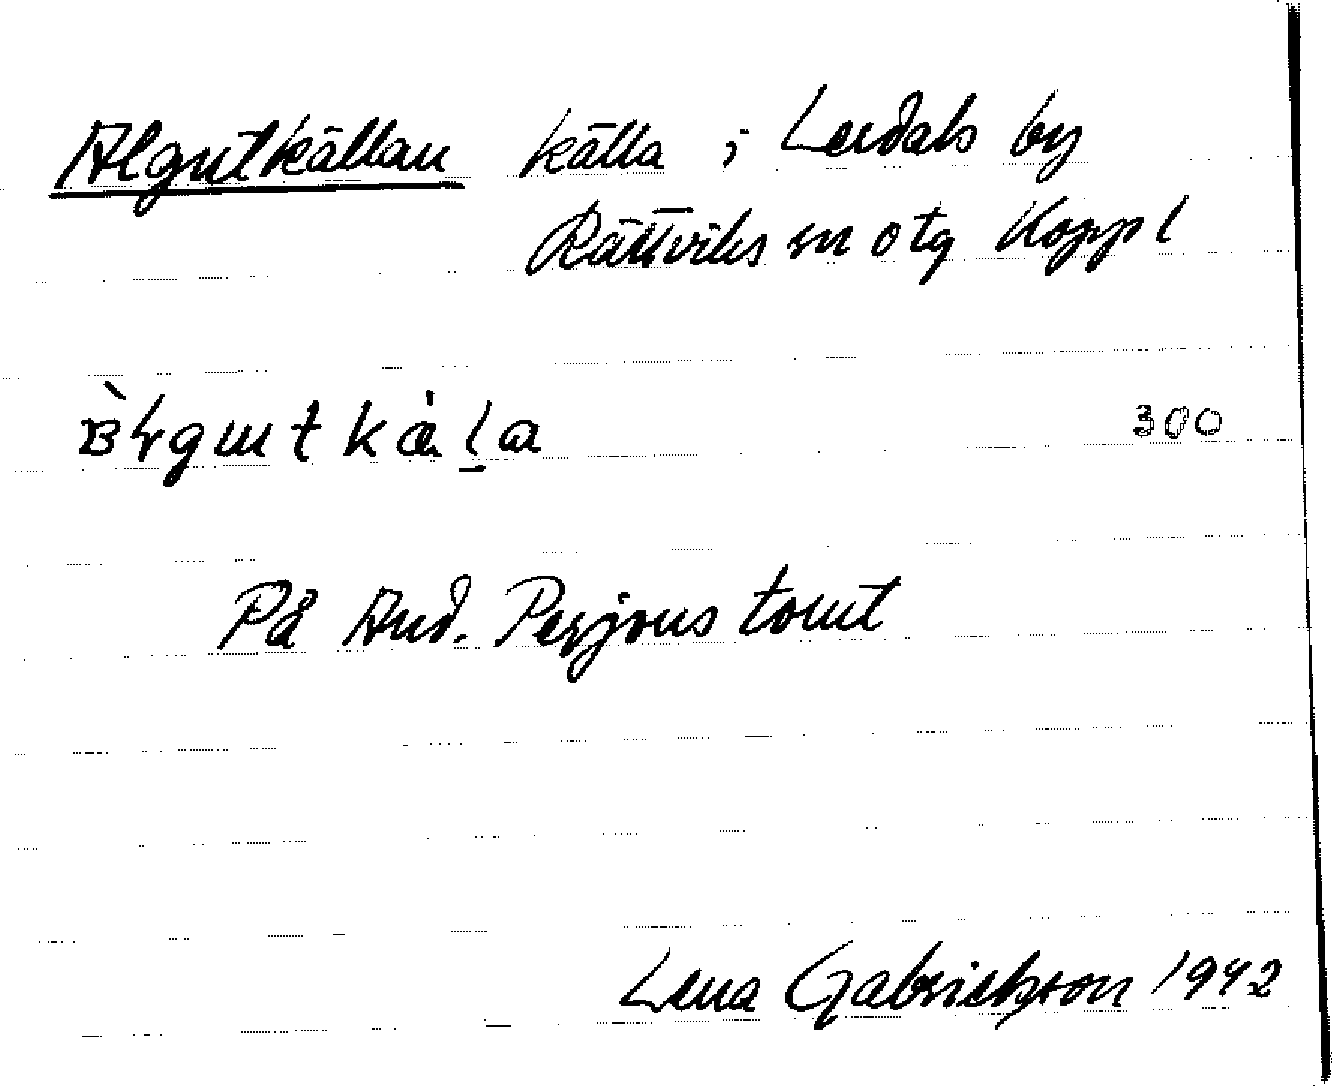 Algutkällan källa i Lerdals by
Rättviks sn o tg Koppl
300
På And. Persjons tomt
Lena Gabrielsson 1942